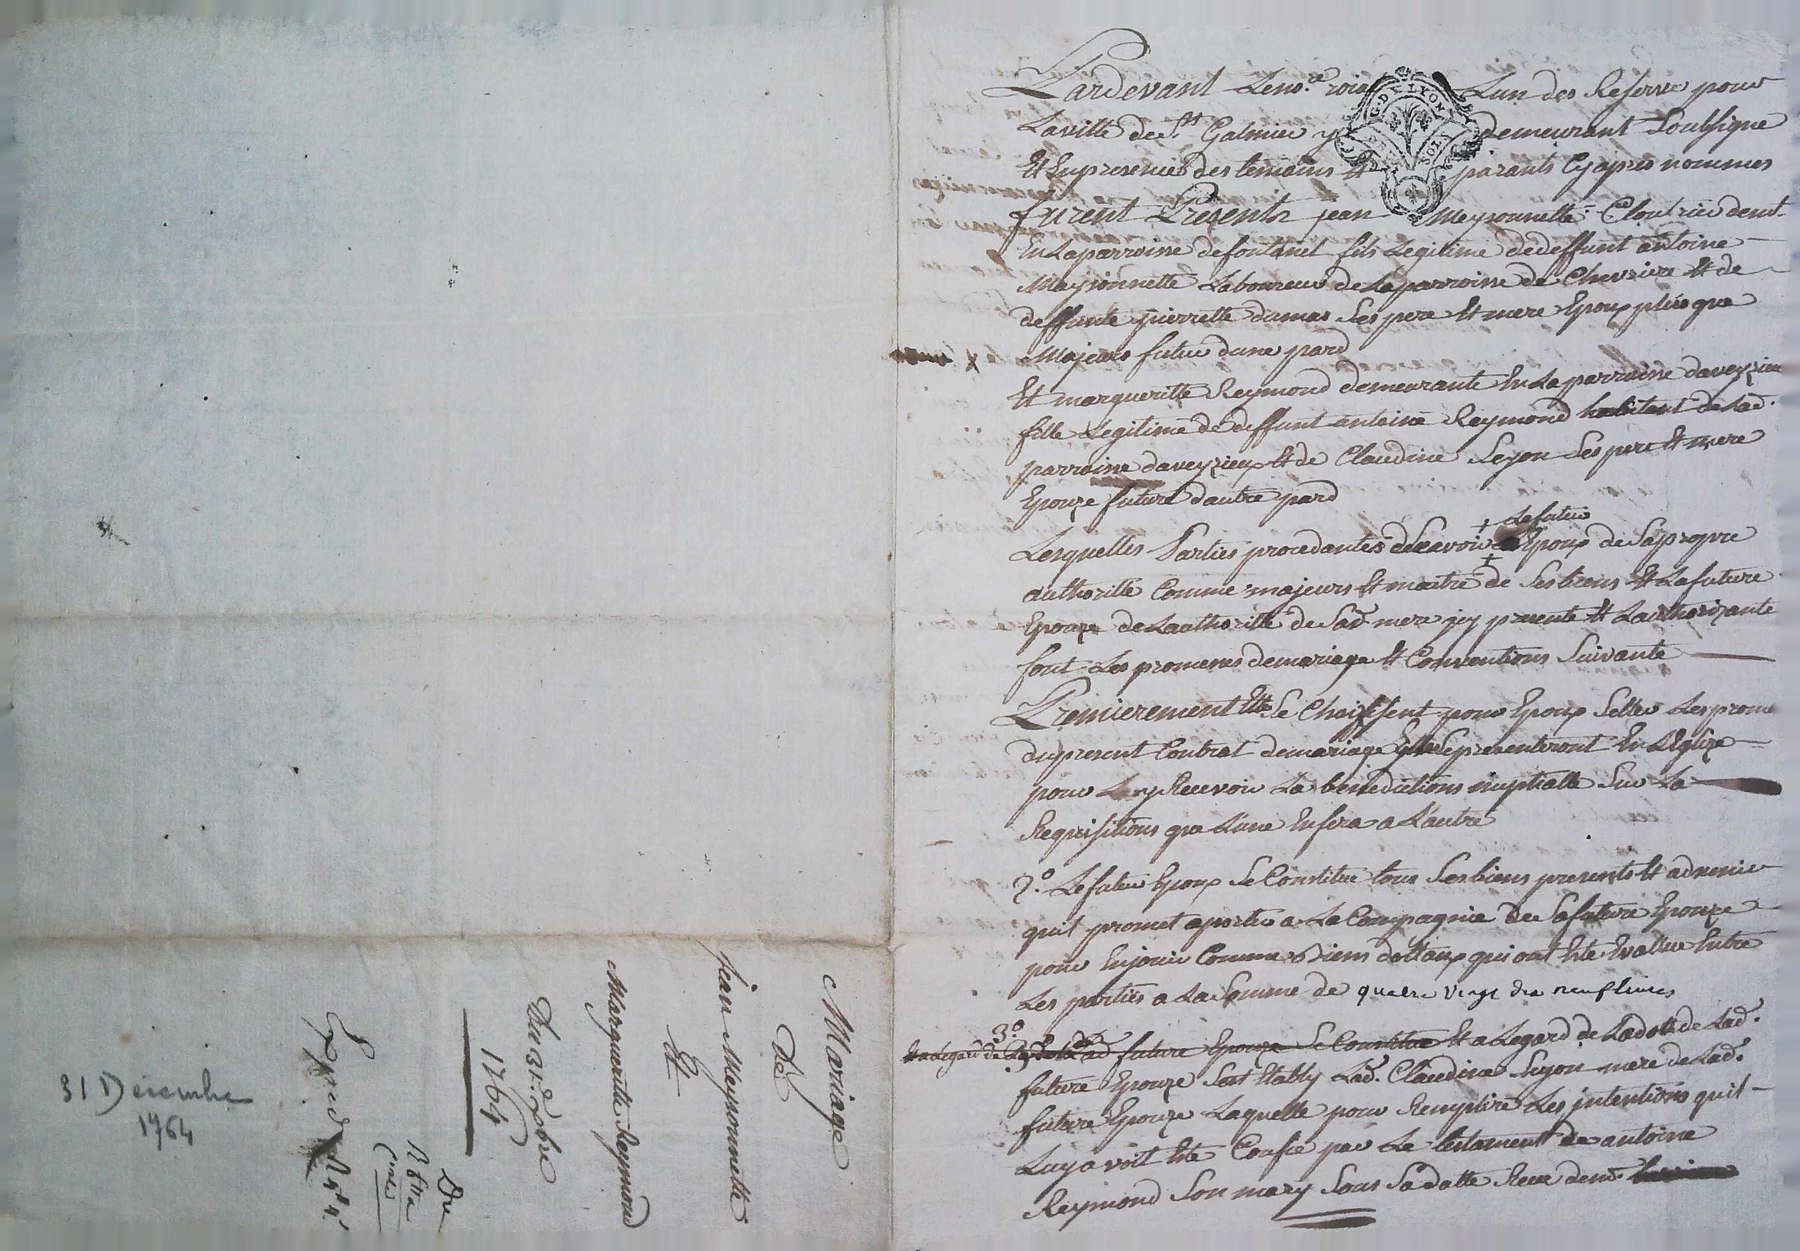 Mariage
De
jean Meyzonnette
Et
Marguerite Reymond
Du 31e Xbre
1764
Du
Expéd
31 Décembre
1764
G. DE LYON
SOL
Pardevant Le no.re roial Lun des Reservé pour
La ville de St Galmier y demeurant Soubsigné
Et En presence des temoins Et parants Cy apres nommes
furent Presents jean Meysonnette Cloutrier demt
En La parroisse de fontanet fils Legitime de deffunt antoine
Meysonnette Laboureur de La parroisse de Chevriere Et de
deffunte pierrette dumas Ses pere Et mere Epoux plus que
Majeurs futur dune pard
Et margueritte Reymond demeurante En La parroisse daveyzieu
fille Legitime de deffunt antoine Reymond habitant de Lad.
parroisse daveyzieux Et de Claudine Seyon Ses pere Et mere
Epouze future dautre pard
Le futur
Lesquelles Parties procedantes Scavoir Epoux de Sa propre
authoritté Comme majeurs Et maitre de Ses biens Et La future
Epouze de Lauthoritté de Sad. mere jcy presente Et Lauthorizante
font Les promesses de mariage Et Conventions Suivante
Premierement Se Choisissent pour Epoux Selles Les prome
du present Contrat de mariage Se presenteront En LEglize
pour Recevoir La benediction nuptialle Sur La
Requisitions que Lune En fera a Lautre
2.o Le futur Epoux Se Constitue tous Ses biens presents Et advenir
quil promet aporter a La Compagnie de Sa future Epouze
pour En jouir Comme Biens dottaux qui ont Eté Evallue Entre
Les parties a La Somme de quatre vingt dix neuf livres
3.o future Epouze Se Constitue Et a Legard de La dotte de Lad.
future Epouze Sest Etably Lad. Claudine Seyon mere de Lad.
future Epouze Laquelle pour Remplire Les jntentions quil
Luy avoit Eté Confié par Le testament de antoine
Reymond Son mary Sous Sa datte Receu de me